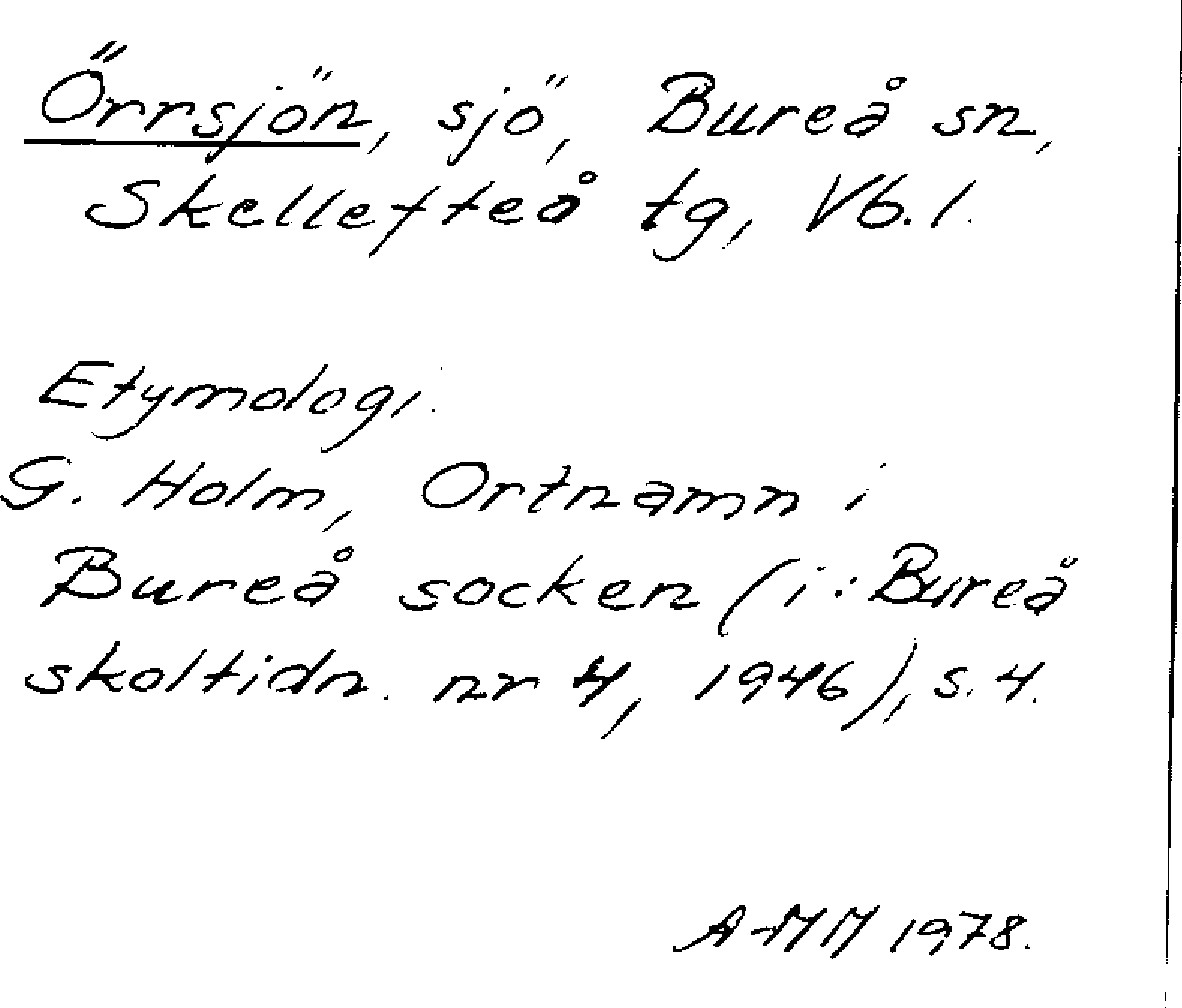 Örrsjön, sjö, Bureå sn,
Skellefteå tg, Vb. l.
Etymologi.
G. Holm, Ortnamn i
Bureå socken (i: Bureå
skoltidn. nr 4, 1946), s. 4.
A-MM 1978.